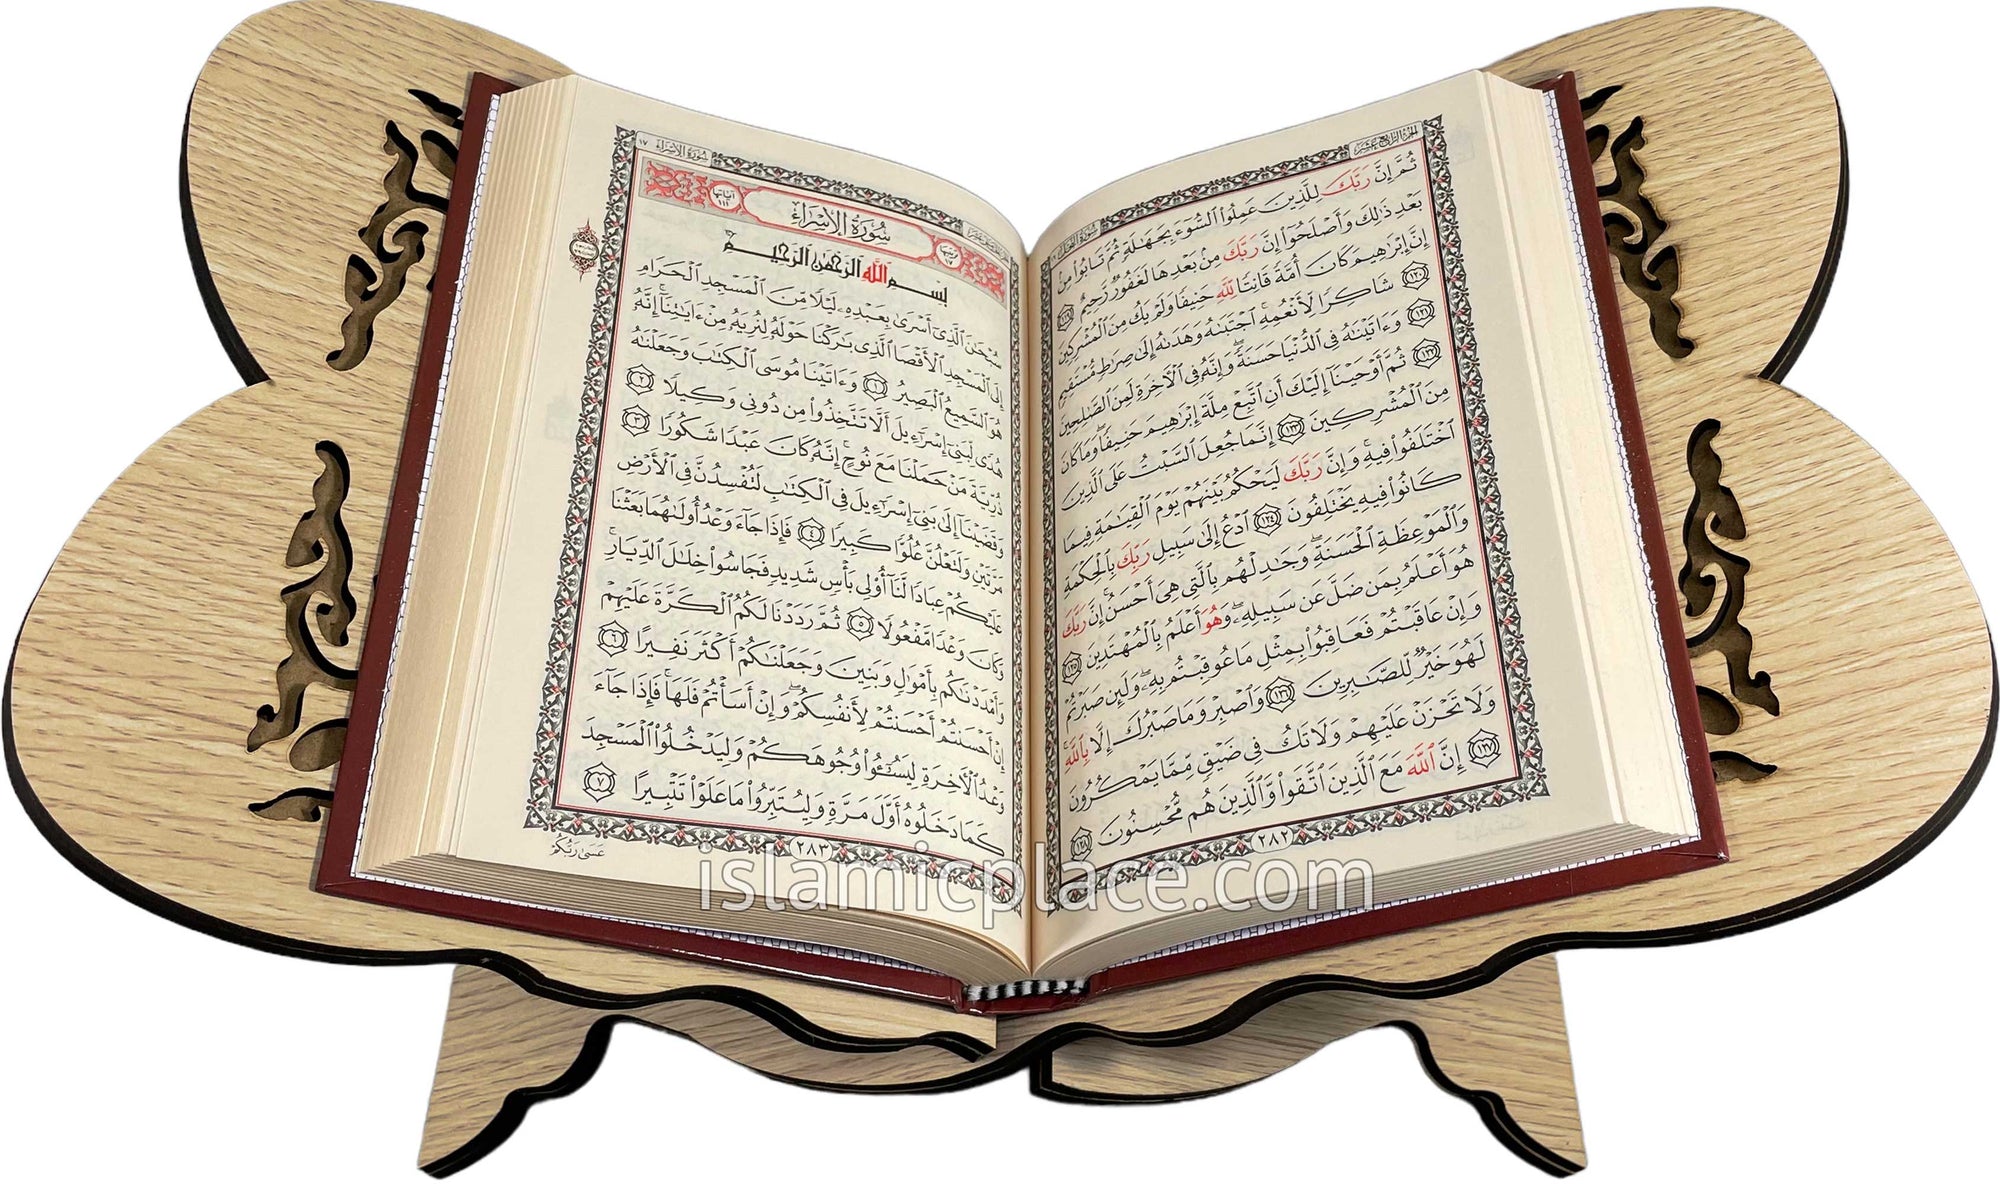 سُورَةُ النَّحْلِ
الجُزْءُ الرَّابِعَ عَشَرَ
ثُمَّ إِنَّ رَبَّكَ لِلَّذِينَ عَمِلُواْ ٱلسُّوٓءَ بِجَهَٰلَةٍ ثُمَّ تَابُواْ مِنۢ
بَعْدِ ذَٰلِكَ وَأَصْلَحُوٓاْ إِنَّ رَبَّكَ مِنۢ بَعْدِهَا لَغَفُورٌ رَّحِيمٌ ١١٩
إِنَّ إِبْرَٰهِيمَ كَانَ أُمَّةً قَانِتًا لِّلَّهِ حَنِيفًا وَلَمْ يَكُ مِنَ ٱلْمُشْرِكِينَ
١٢٠ شَاكِرًا لِّأَنْعُمِهِ ۚ ٱجْتَبَىٰهُ وَهَدَىٰهُ إِلَىٰ صِرَٰطٍ مُّسْتَقِيمٍ
١٢١ وَءَاتَيْنَٰهُ فِى ٱلدُّنْيَا حَسَنَةً ۖ وَإِنَّهُۥ فِى ٱلْءَاخِرَةِ لَمِنَ ٱلصَّٰلِحِينَ
١٢٢ ثُمَّ أَوْحَيْنَآ إِلَيْكَ أَنِ ٱتَّبِعْ مِلَّةَ إِبْرَٰهِيمَ حَنِيفًا ۖ وَمَا كَانَ
مِنَ ٱلْمُشْرِكِينَ ١٢٣ إِنَّمَا جُعِلَ ٱلسَّبْتُ عَلَى ٱلَّذِينَ
ٱخْتَلَفُواْ فِيهِ ۚ وَإِنَّ رَبَّكَ لَيَحْكُمُ بَيْنَهُمْ يَوْمَ ٱلْقِيَٰمَةِ فِيمَا
كَانُواْ فِيهِ يَخْتَلِفُونَ ١٢٤ ٱدْعُ إِلَىٰ سَبِيلِ رَبِّكَ بِٱلْحِكْمَةِ
وَٱلْمَوْعِظَةِ ٱلْحَسَنَةِ ۖ وَجَٰدِلْهُم بِٱلَّتِى هِىَ أَحْسَنُ ۚ إِنَّ رَبَّكَ
هُوَ أَعْلَمُ بِمَن ضَلَّ عَن سَبِيلِهِۦ ۖ وَهُوَ أَعْلَمُ بِٱلْمُهْتَدِينَ ١٢٥
وَإِنْ عَاقَبْتُمْ فَعَاقِبُواْ بِمِثْلِ مَا عُوقِبْتُم بِهِۦ ۖ وَلَئِن صَبَرْتُمْ
لَهُوَ خَيْرٌ لِّلصَّٰبِرِينَ ١٢٦ وَٱصْبِرْ وَمَا صَبْرُكَ إِلَّا بِٱللَّهِ ۚ
وَلَا تَحْزَنْ عَلَيْهِمْ وَلَا تَكُ فِى ضَيْقٍ مِّمَّا يَمْكُرُونَ
١٢٧ إِنَّ ٱللَّهَ مَعَ ٱلَّذِينَ ٱتَّقَواْ وَّٱلَّذِينَ هُم مُّحْسِنُونَ ١٢٨
٢٨٢
سُورَةُ الإِسْرَاءِ ١٧
ترتيبها ١٧
سُورَةُ الإِسْرَاءِ
آياتها ١١١
بِسْمِ ٱللَّهِ ٱلرَّحْمَٰنِ ٱلرَّحِيمِ
سُبْحَٰنَ ٱلَّذِىٓ أَسْرَىٰ بِعَبْدِهِۦ لَيْلًا مِّنَ ٱلْمَسْجِدِ ٱلْحَرَامِ
إِلَى ٱلْمَسْجِدِ ٱلْأَقْصَا ٱلَّذِى بَٰرَكْنَا حَوْلَهُۥ لِنُرِيَهُۥ مِنْ ءَايَٰتِنَآ ۚ إِنَّهُۥ
هُوَ ٱلسَّمِيعُ ٱلْبَصِيرُ ١ وَءَاتَيْنَا مُوسَى ٱلْكِتَٰبَ وَجَعَلْنَٰهُ
هُدًى لِّبَنِىٓ إِسْرَٰٓءِيلَ أَلَّا تَتَّخِذُواْ مِن دُونِى وَكِيلًا ٢
ذُرِّيَّةَ مَنْ حَمَلْنَا مَعَ نُوحٍ ۚ إِنَّهُۥ كَانَ عَبْدًا شَكُورًا ٣
وَقَضَيْنَآ إِلَىٰ بَنِىٓ إِسْرَٰٓءِيلَ فِى ٱلْكِتَٰبِ لَتُفْسِدُنَّ فِى ٱلْأَرْضِ
مَرَّتَيْنِ وَلَتَعْلُنَّ عُلُوًّا كَبِيرًا ٤ فَإِذَا جَآءَ وَعْدُ أُولَىٰهُمَا بَعَثْنَا
عَلَيْكُمْ عِبَادًا لَّنَآ أُوْلِى بَأْسٍ شَدِيدٍ فَجَاسُواْ خِلَٰلَ ٱلدِّيَارِ ۚ
وَكَانَ وَعْدًا مَّفْعُولًا ٥ ثُمَّ رَدَدْنَا لَكُمُ ٱلْكَرَّةَ عَلَيْهِمْ
وَأَمْدَدْنَٰكُم بِأَمْوَٰلٍ وَبَنِينَ وَجَعَلْنَٰكُمْ أَكْثَرَ نَفِيرًا ٦
إِنْ أَحْسَنتُمْ أَحْسَنتُمْ لِأَنفُسِكُمْ ۖ وَإِنْ أَسَأْتُمْ فَلَهَا ۚ فَإِذَا جَآءَ
وَعْدُ ٱلْءَاخِرَةِ لِيَسُۥٓـُٔواْ وُجُوهَكُمْ وَلِيَدْخُلُواْ ٱلْمَسْجِدَ
كَمَا دَخَلُوهُ أَوَّلَ مَرَّةٍ وَلِيُتَبِّرُواْ مَا عَلَوْاْ تَتْبِيرًا ٧
٢٨٣
عَسَىٰ رَبُّكُمْ
islamicplace.com